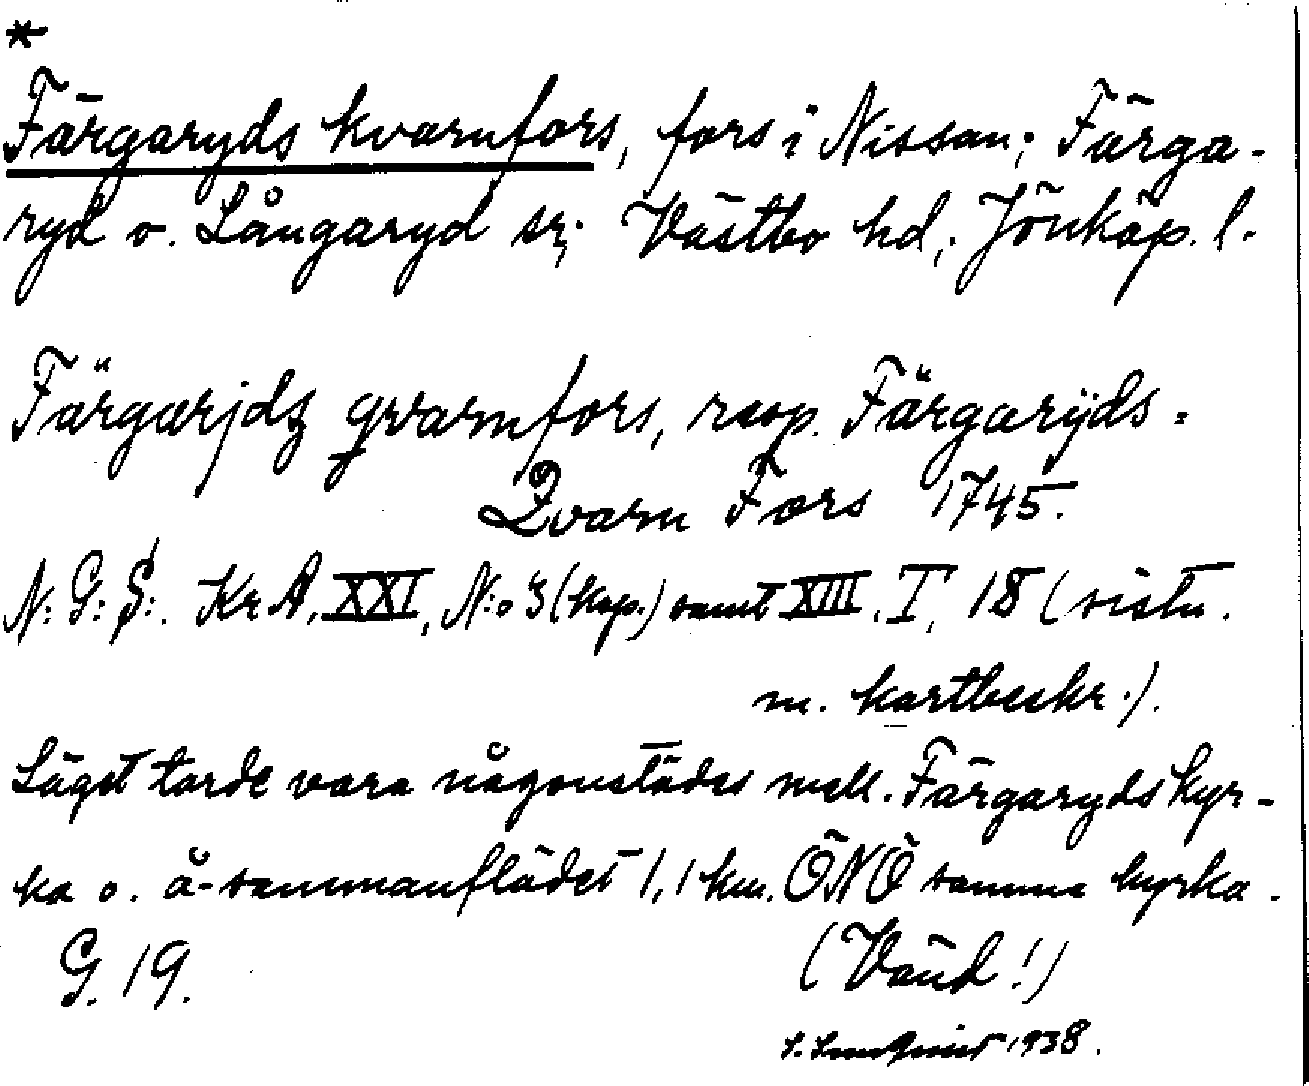 *
Färgaryds kvarnfors, fors i Nissan; Färga-
ryd o. Långaryd sr; Västbo hd, Jönköp. l.
Färgarjdz qvarnfors, resp. Färgarÿds=
Qvarn Fors 1745.
N: G: S:. KrA. XXI, N:o 3 (kop.) samt XIII. I, 18 (sistn.
m. kartbeskr.).
Läget torde vara någonstädes mell. Färgaryds kyr-
ka o. å-sammanflödet 1,1 km. ÖNÖ samma kyrka.
G. 19. (Vänd!)
1938.